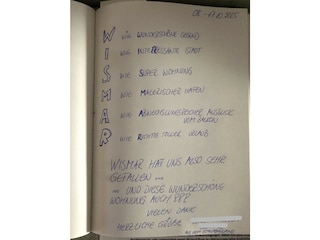 W WIE WUNDERSCHÖNE GEGEND
I WIE INTERESSANTE STADT
S WIE SUPER WOHNUNG
M WIE MALERISCHER HAFEN
A WIE ABWECHSLUNGSREICHER AUSBLICK
VOM BALKON
R WIE RICHTIG TOLLER URLAUB
WISMAR HAT UNS ALSO SEHR
GEFALLEN ...
... UND DIESE WUNDERSCHÖNE
WOHNUNG AUCH
VIELEN DANK
HERZLICHE GRÜSSE